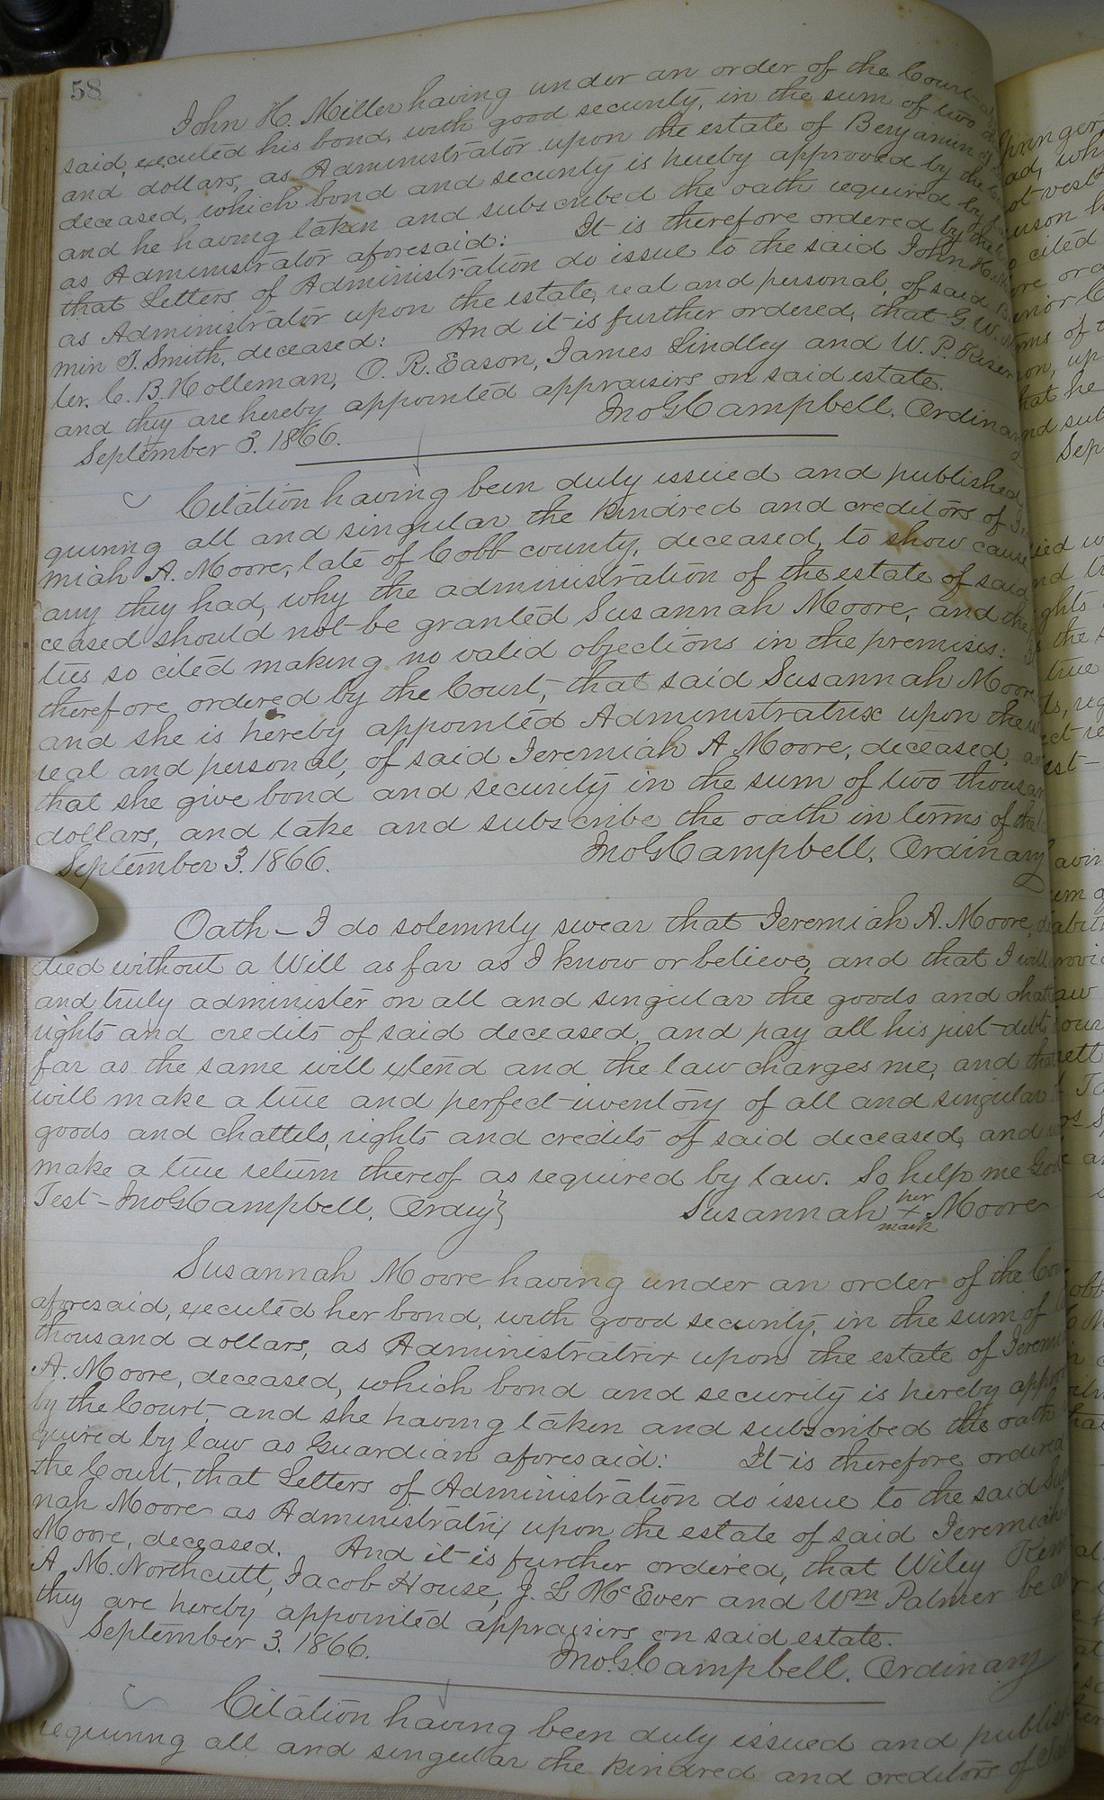 58
John H. Miller having under an order of the Court
said, executed his bond, with good security, in the sum of two
and dollars, as Administrator upon the estate of Benjamin
deceased, which bond and security is hereby approved by the
and he having taken and subscribed the oath required by
as Administrator aforesaid: It is therefore ordered by the
that Letters of Administration do issue to the said John H.
as Administrator upon the estate, real and personal, of said
min T. Smith, deceased: And it is further ordered, that G. W.
ler. C. B. Holleman, O. R. Eason, James Lindley and W. P.
and they are hereby appointed appraisirs on said estate.
September 3. 1866. Jno G Campbell. Ordinary
Citation having been duly issued and published
quiring all and singular the kindred and creditors of
miah A. Moore, late of Cobb county, deceased, to show cause
any they had, why the administration of the estate of said
ceased should not be granted Susannah Moore, and the
ties so cited making no valid objections in the premises:
therefore ordered by the Court, that said Susannah Moore
and she is hereby appointed Administratrix upon the
real and personal, of said Jeremiah A Moore, deceased,
that she give bond and security in the sum of two thousan
dollars, and take and subscribe the oath in terms of the
September 3. 1866. Jno G Campbell. Ordinary
Oath – I do solemnly swear that Jeremiah A. Moore,
died without a Will as far as I know or believe, and that I will
and truly administer on all and singular the goods and chat
rights and credits of said deceased, and pay all his just debts
far as the same will extend and the law charges me, and that
will make a true and perfect inventory of all and singular
goods and chattels, rights and credits of said deceased, and
make a true return thereof as required by law. So help me God
Test – Jno G Campbell. Ordny} Susannah her x mark Moore
Susannah Moore having under an order of the Cou
aforesaid, executed her bond, with good security, in the sum of
thousand dollars, as Administratrix upon the estate of Jeremi
A. Moore, deceased, which bond and security is hereby appro
by the Court, and she having taken and subscribed the oath
quired by law as Guardian aforesaid: It is therefore ordered
the Court, that Letters of Administration do issue to the said
nah Moore as Administratrix upon the estate of said Jeremiah
Moore, deceased. And it is further ordered, that Wiley
A. M. Northcutt, Jacob House, J. L McEver and Wm Palmer be
they are hereby appointed appraisirs on said estate.
September 3. 1866. Jno. G. Campbell. Ordinary
Citation having been duly issued and publis
requiring all and singular the kindred and creditors of